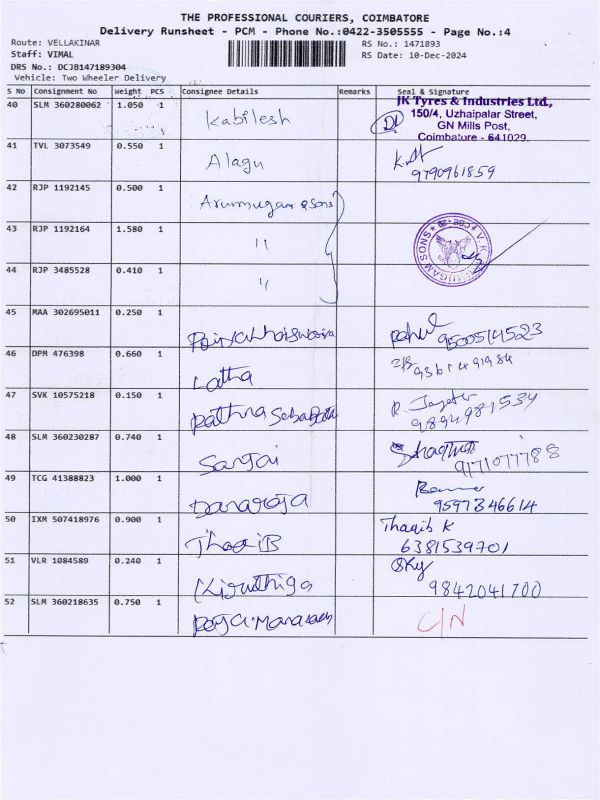 THE PROFESSIONAL COURIERS, COIMBATORE
Delivery Runsheet - PCM - Phone No.:0422-3505555 - Page No.:4
Route: VELLAKINAR RS No.: 1471893
Staff: VIMAL RS Date: 10-Dec-2024
DRS No.: DCJB147189304
Vehicle: Two Wheeler Delivery
S No Consignment No Weight PCS Consignee Details Remarks Seal & Signature
40 SLM 360280062 1.050 1 Kabilesh
JK Tyres & Industries Ltd.,
150/4, Uzhaipalar Street,
GN Mills Post,
Coimbatore - 641029.
41 TVL 3073549 0.550 1 Alagu
9790961859
42 RJP 1192145 0.500 1 Arumugam & Sons
43 RJP 1192164 1.580 1 "
44 RJP 3485528 0.410 1 "
45 MAA 302695011 0.250 1
Rahul 9500514523
46 DPM 476398 0.660 1 Latha
9361491984
47 SVK 10575218 0.150 1 Rathna
9894981534
48 SLM 360230287 0.740 1 Sanjai
9171077788
49 TCG 41388823 1.000 1 Danaraja
9597346614
50 IXM 507418976 0.900 1 ThaqiB
Thaqib K
6381539701
51 VLR 1084589 0.240 1 Kiruthiga
Sky
9842041700
52 SLM 360218635 0.750 1
C/N